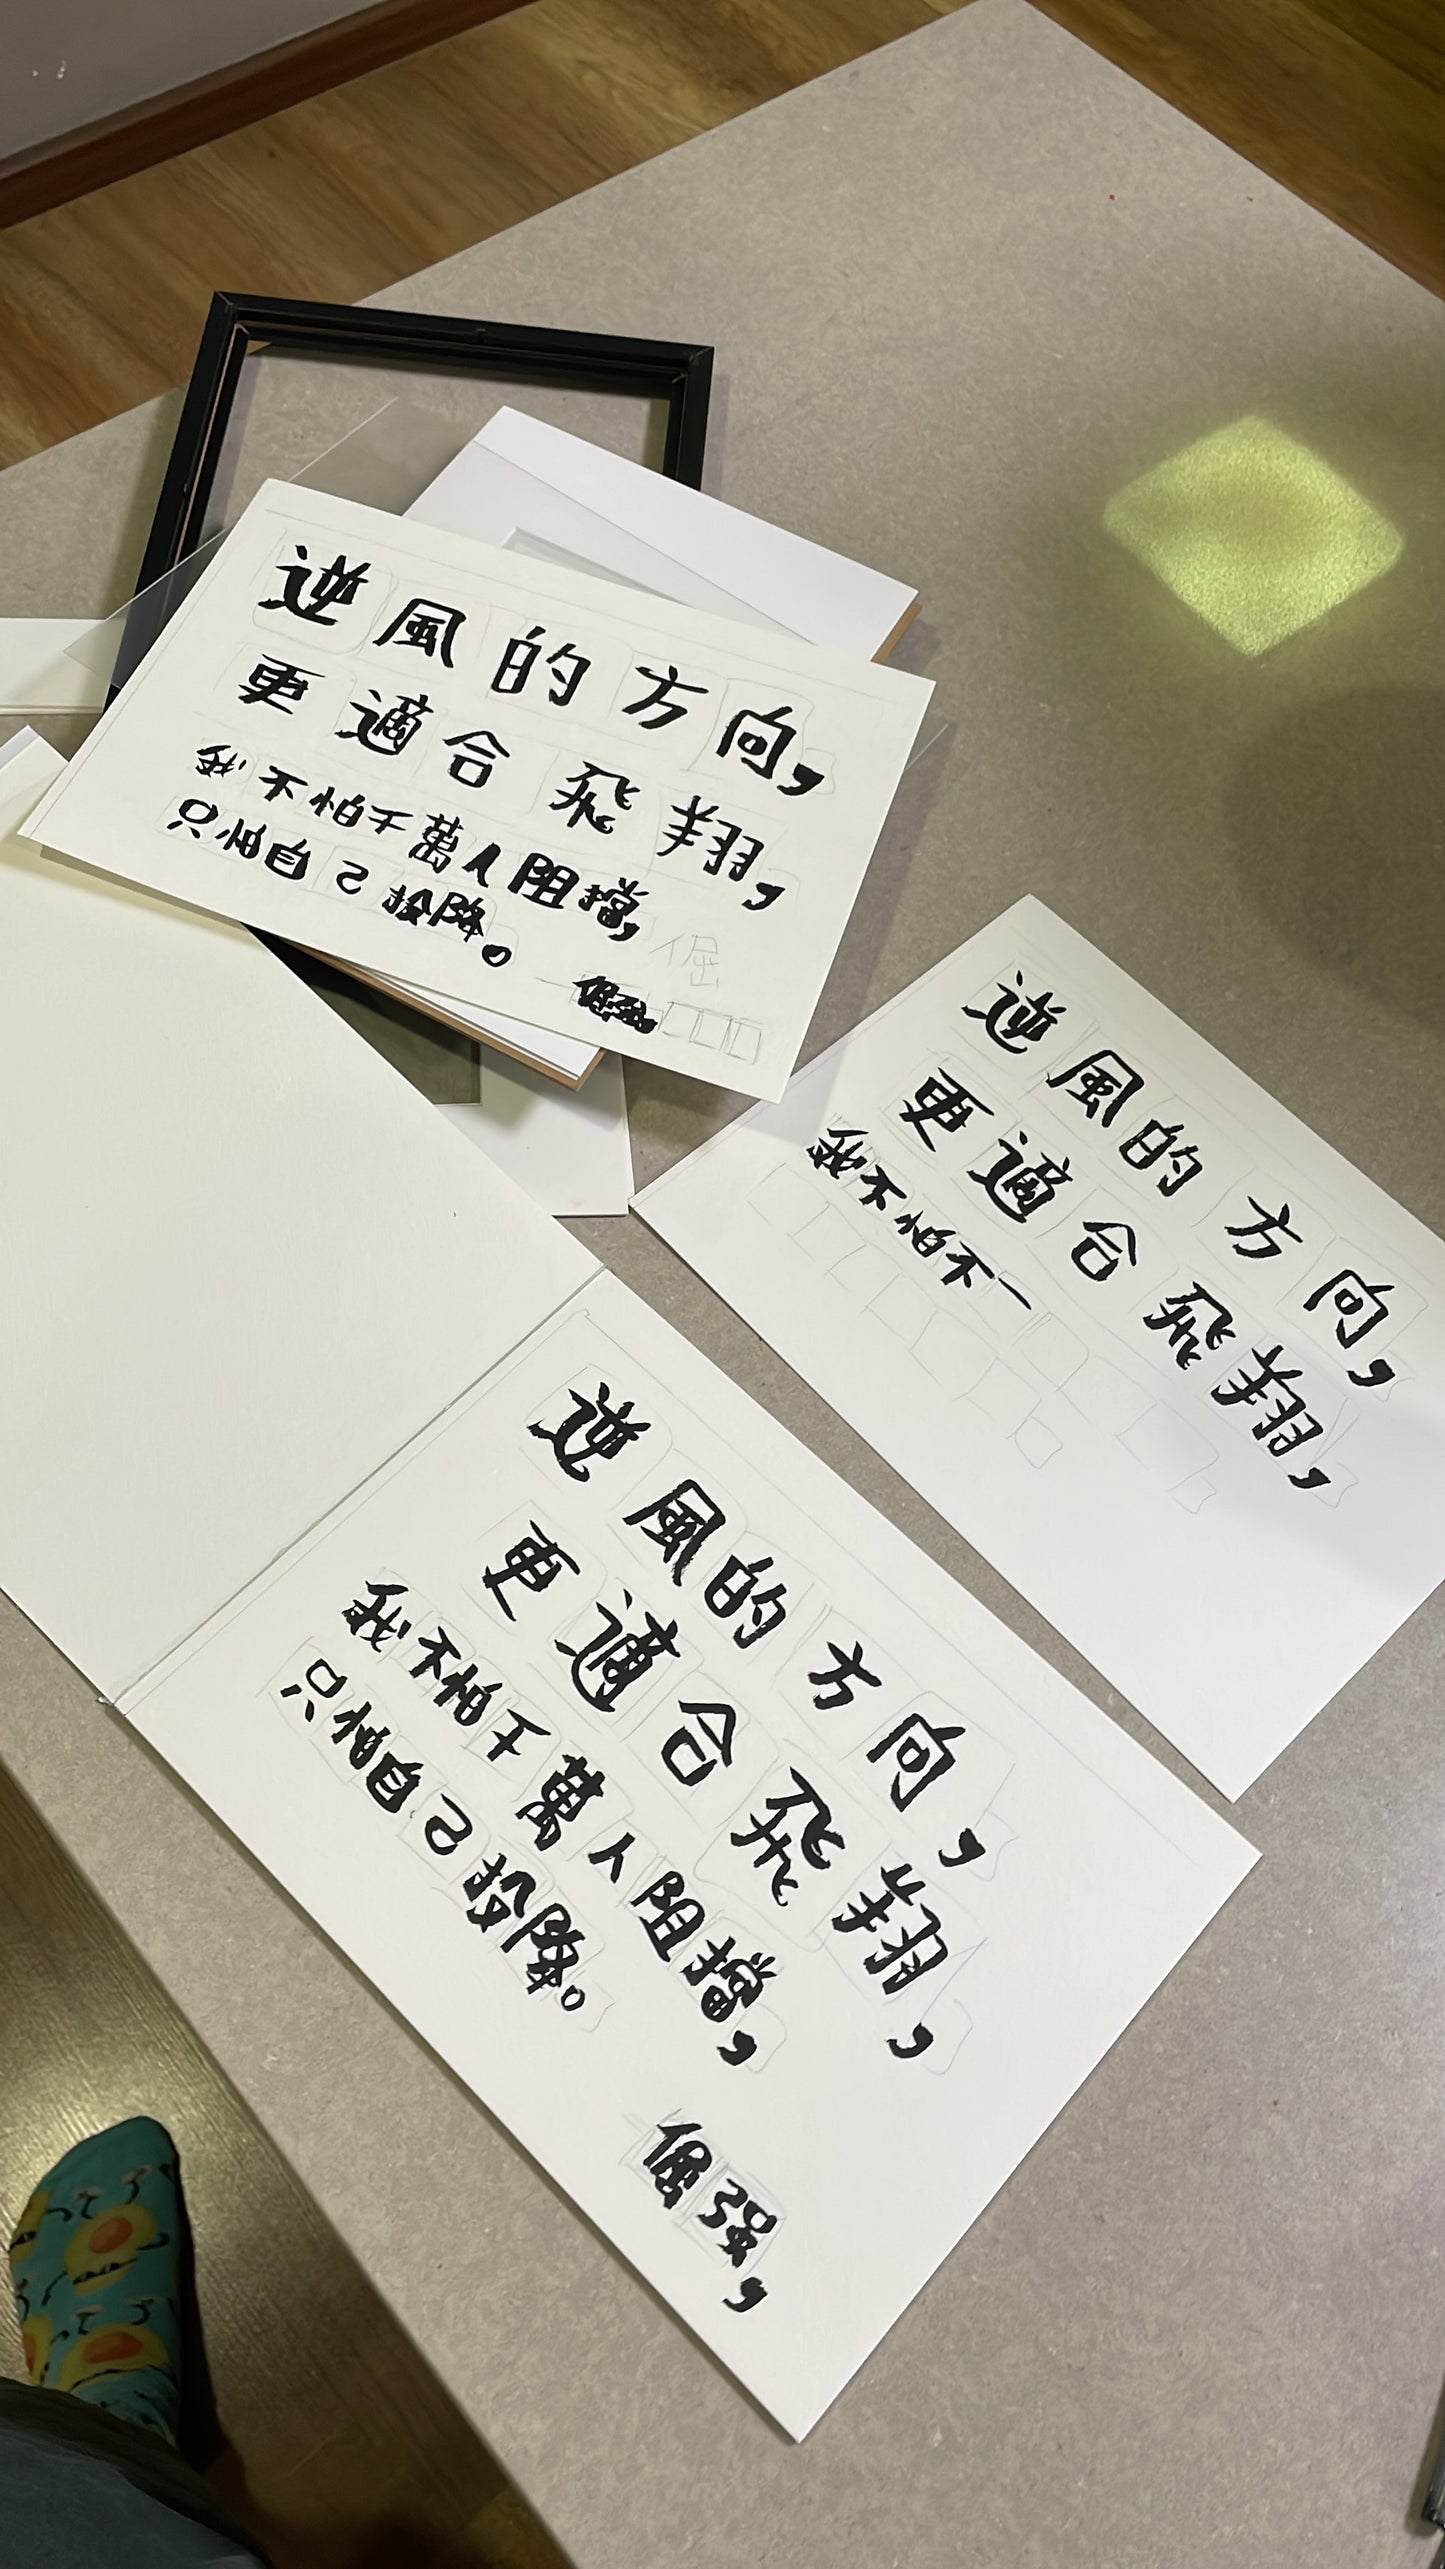 逆風的方向，
更適合飛翔，
我不怕千萬人阻擋，
只怕自己投降。
倔
倔强
逆風的方向，
更適合飛翔，
我不怕不一
逆風的方向，
更適合飛翔，
我不怕千萬人阻擋，
只怕自己投降。
倔强，